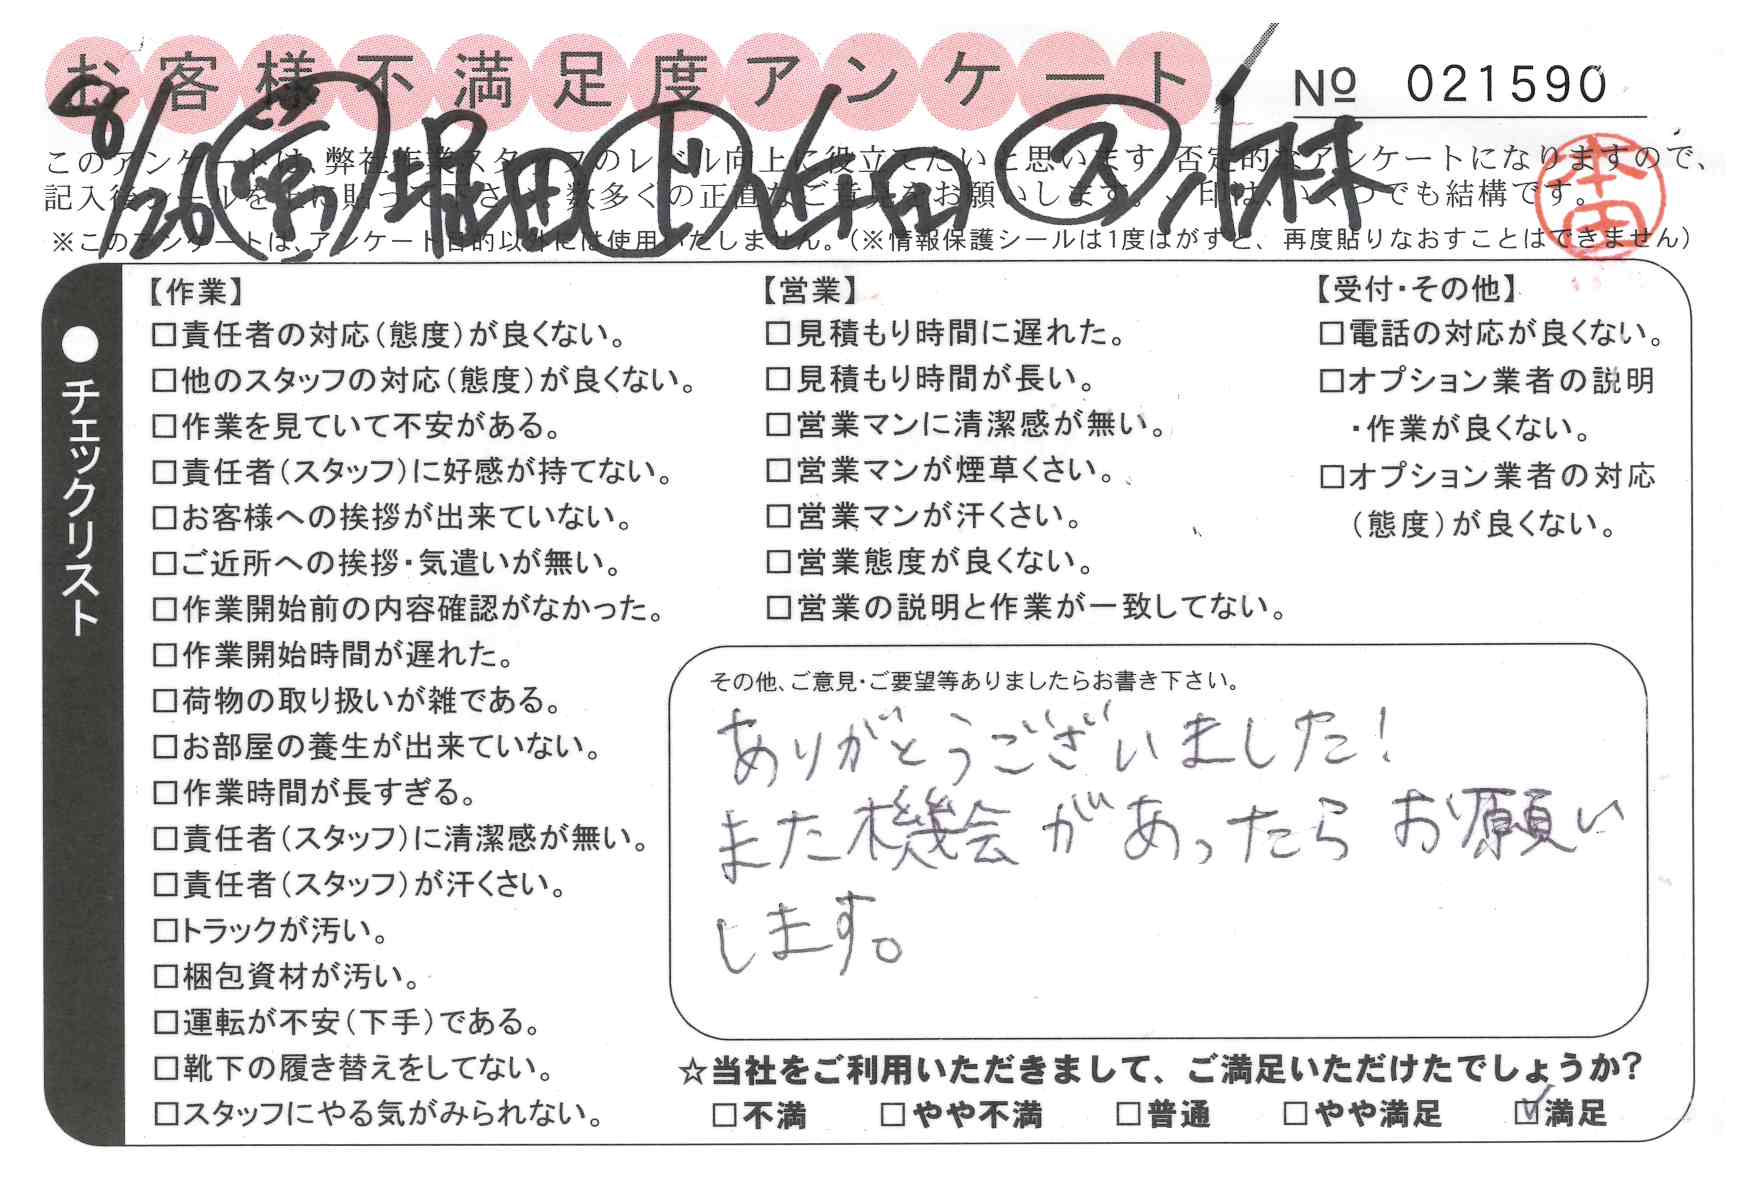 お客様不満足度アンケート
№ 021590
8/26 営 堀田 ド 上田 ス 小林
このアンケートは、弊社作業スタッフのレベル向上に役立てたいと思います。否定的なアンケートになりますので、
記入後シールを上に貼って下さい。数多くの正直なご意見をお願いします。✓印は、いくつでも結構です。
本田
※このアンケートは、アンケート目的以外には使用いたしません。（※情報保護シールは1度はがすと、再度貼りなおすことはできません）
●チェックリスト
【作業】
□責任者の対応（態度）が良くない。
□他のスタッフの対応（態度）が良くない。
□作業を見ていて不安がある。
□責任者（スタッフ）に好感が持てない。
□お客様への挨拶が出来ていない。
□ご近所への挨拶・気遣いが無い。
□作業開始前の内容確認がなかった。
□作業開始時間が遅れた。
□荷物の取り扱いが雑である。
□お部屋の養生が出来ていない。
□作業時間が長すぎる。
□責任者（スタッフ）に清潔感が無い。
□責任者（スタッフ）が汗くさい。
□トラックが汚い。
□梱包資材が汚い。
□運転が不安（下手）である。
□靴下の履き替えをしてない。
□スタッフにやる気がみられない。
【営業】
□見積もり時間に遅れた。
□見積もり時間が長い。
□営業マンに清潔感が無い。
□営業マンが煙草くさい。
□営業マンが汗くさい。
□営業態度が良くない。
□営業の説明と作業が一致してない。
【受付・その他】
□電話の対応が良くない。
□オプション業者の説明
・作業が良くない。
□オプション業者の対応
（態度）が良くない。
その他、ご意見・ご要望等ありましたらお書き下さい。
ありがとうございました！
また機会があったらお願い
します。
☆当社をご利用いただきまして、ご満足いただけたでしょうか？
□不満 □やや不満 □普通 □やや満足 ☑満足